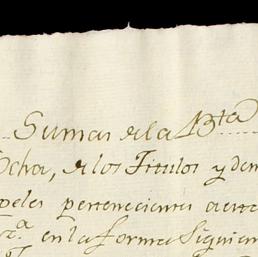 Sumas de la Bta
Ocha, de los Titulos y dem
peles pertenecientes a esta
Fca. en la forma Siguien